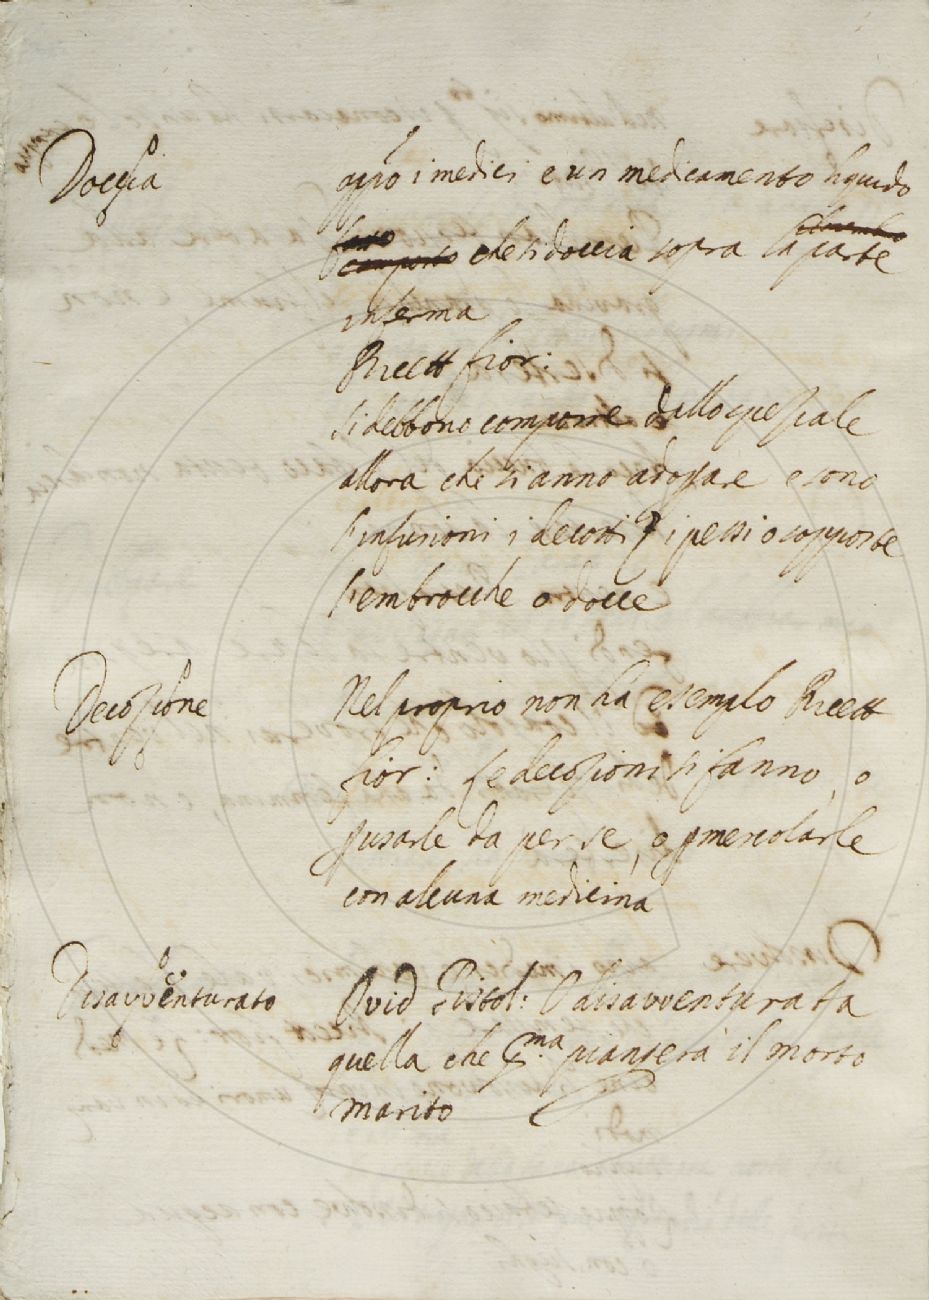 Doccia
app̃o i medici e un medicamento liquido
fatto composto che si doccia sopra la parte
inferma
Ricett fior:
si debbono comporre dallo speziale
allora che s'anno adoprare e sono
l'infusioni i decotti i pessi o sopposte
l'embrocche o docce
Decozione
Nel proprio non ha esempio Ricett
fior: Le decozioni si fanno, o
p usarle da per se, o p mescolarle
con alcuna medicina
Disavventurato
Ovid Pistol: O disavventurata
quella che pma piansera il morto
marito